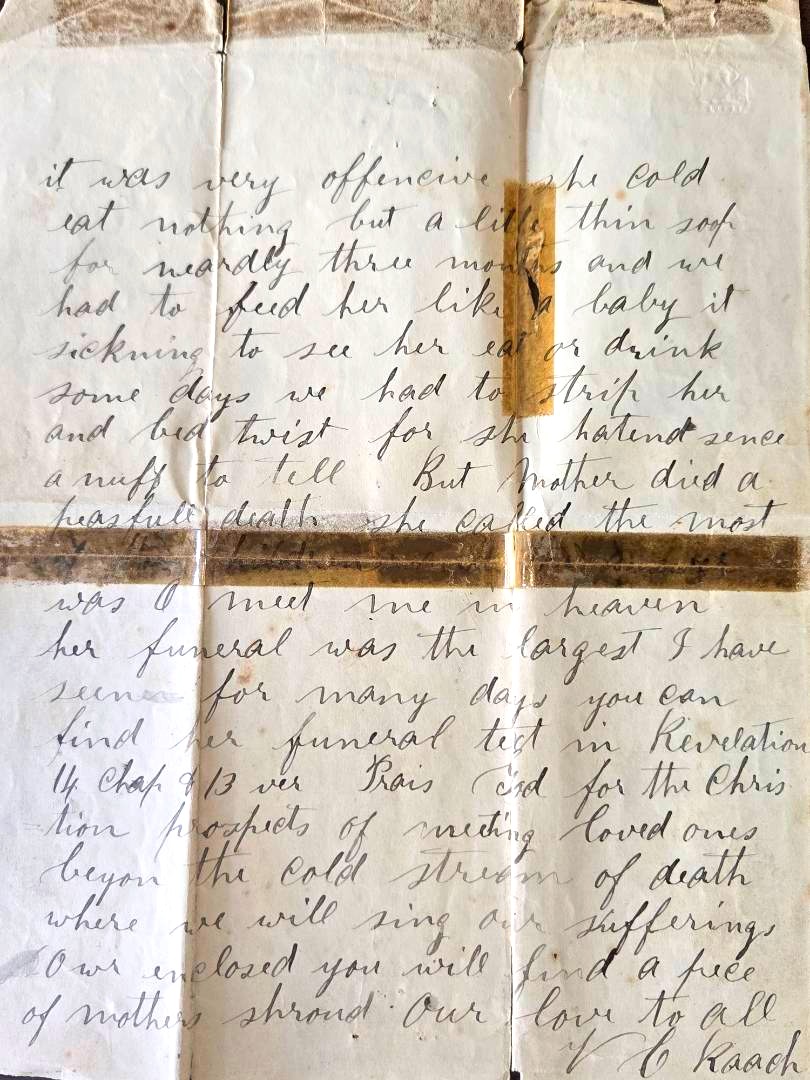 it was very offencive she cold
eat nothing but a litle thin soop
for neardly three months and we
had to feed her like a baby it
sickning to see her eat or drink
some days we had to strip her
and bed twist for she hatend sence
a nuff to tell But Mother died a
peasfull death she called the most
was O meet me in heaven
her funeral was the largest I have
seen for many days you can
find her funeral text in Revelation
14 Chap & 13 ver Prais God for the Chris
tion prospects of meeting loved ones
beyon the cold stream of death
where we will sing our sufferings
Owr enclosed you will find a pece
of mothers shroud Our love to all
V C Raach